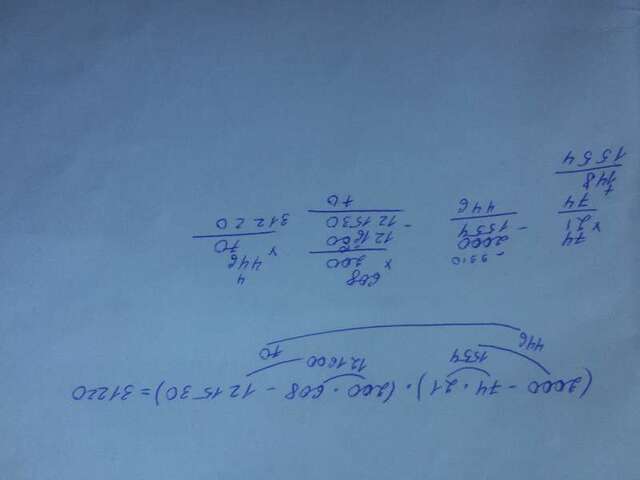 (2000 - 74 · 21) · (200 · 608 - 121530) = 31220
1554
121600
446
70
× 74
21
74
+ 148
1554
9910
- 2000
1554
446
× 608
200
121600
- 121530
70
4
× 446
70
31220